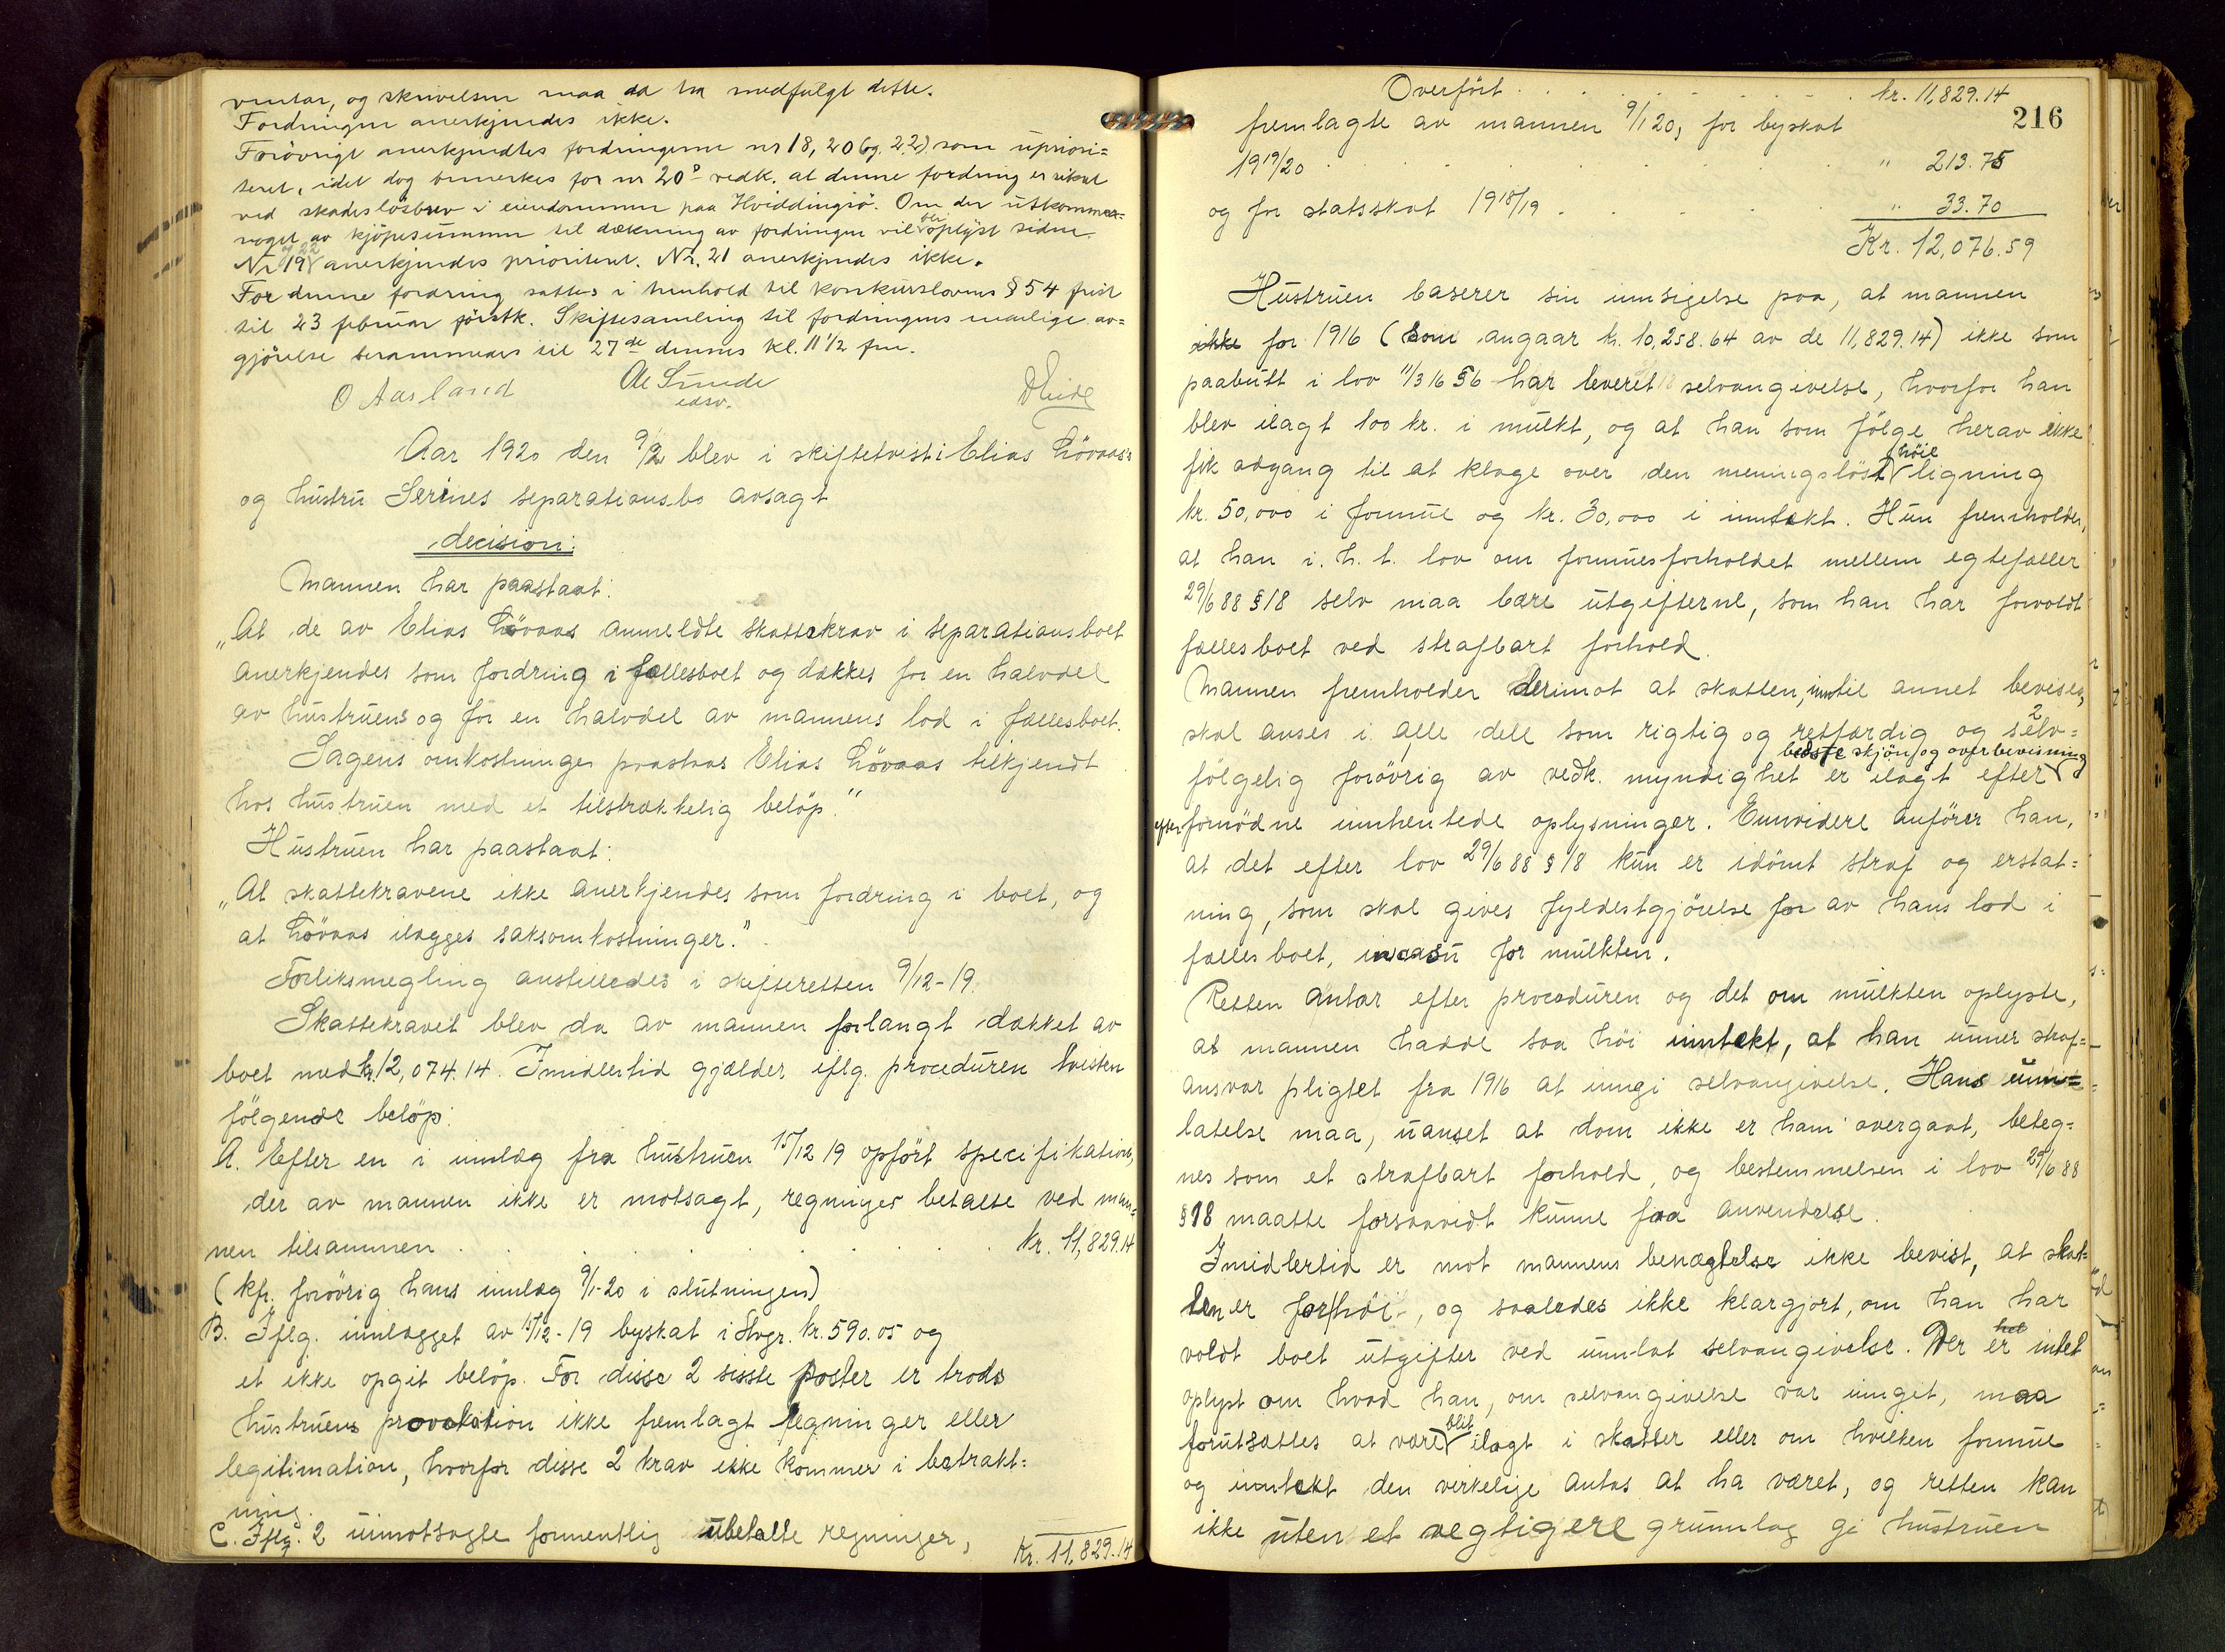 ventar, og skrivelsen maa da ha medfulgt dette.
Fordringen anerkjendes ikke.
Forövrigt anerkjendtes fordringerne nr 18, 20 (og 22) som upriori=
teret, idet dog bemerkes for nr 20s vedk. at denne fordring er sikret
ved skadeslösbrev i eiendommen paa Hviddingsö. Om der utkommer
noget av kjöpesummen til dækning av fordringen vil bli oplyst siden.
Nr 19 og 22 anerkjendes prioriteret. Nr. 21 anerkjendes ikke.
For denne fordring sattes i henhold til konkurslovens § 54 frist
til 23 februar förstk. Skiftesamling til fordringens endelige av=
gjörelse berammedes til 27de dennes kl. 11 1/2 fm.
O Aasland
Al Sunde
edsv.
DEide
Aar 1920 den 9/2 blev i skiftetvist i Elias Lövaas
og hustru Serines separationsbo avsagt
decision:
Mannen har paastaat:
„At de av Elias Lövaas anmeldte skattekrav i separationsboet
anerkjendes som fordring i fællesboet og dækkes for en halvdel
av hustruens og for en halvdel av mannens lod i fællesboet.
Sagens omkostninger paastaas Elias Lövaas tilkjendt
hos hustruen med et tilstrækkelig belöp."
Hustruen har paastaat:
„At skattekravene ikke anerkjendes som fordring i boet, og
at Lövaas ilægges saksomkostninger."
Forliksmegling anstilledes i skifteretten 9/12-19.
Skattekravet blev da av mannen forlangt dækket av
boet med kr. 12,074.14. Imidlertid gjælder iflg. proceduren tvisten
fölgende belöp:
A. Efter en i innlæg fra hustruen 15/12 19 opfört specifikation,
der av mannen ikke er motsagt, regninger betalte ved man=
nen tilsammen . . . . . . . . . . kr. 11,829.14
(kfr. forövrig hans innlæg 9/1-20 i slutningen)
B. Iflg. innlægget av 15/12-19 byskat i Hvgr. kr. 590.05 og
et ikke opgit belöp. For disse 2 sisste poster er trods
hustruens provokation ikke fremlagt regninger eller
legitimation, hvorfor disse 2 krav ikke kommer i betrakt=
ning.
C. Iflg. 2 uimotsagte formentlig ubetalte regninger,
Kr. 11,829.14
Overfört . . . . . . . . kr. 11,829.14
216
fremlagte av mannen 9/1 20, for byskat
1919/20 . . . . . . . . " 213.75
og for statsskat 1918/19 . . . . . " 33.70
Kr. 12,076.59
Hustruen baserer sin innsigelse paa, at mannen
ikke for 1916 (som angaar kr. 10,258.64 av de 11,829.14) ikke som
paabutt i lov 11/3 16 § 6 har leveret selvangivelse, hvorfor han
blev ilagt 100 kr. i mulkt, og at han som fölge herav ikke
fik adgang til at klage over den meningslöst höie ligning
kr. 50,000 i formue og kr. 30,000 i inntekt. Hun fremholder,
at han i. h. t. lov om formuesforholdet mellem egtefæller
29/6 88 § 18 selv maa bære utgifterne, som han har forvoldt
fællesboet ved strafbart forhold.
Mannen fremholder derimot at skatten, inntil annet bevises,
skal anses i alle dele som rigtig og retfærdig og selv=
fölgelig forövrig av vedk. myndighet er ilagt efter bedste skjön og overbevisning
efter fornödne innhentede oplysninger. Ennvidere anförer han,
at det efter lov 29/6 88 § 18 kun er idömt straf og erstat=
ning, som skal gives fyldestgjörelse for av hans lod i
fællesboet, in casu for mulkten.
Retten antar efter proceduren og det om mulkten oplyste,
at mannen hadde saa höi inntekt, at han unner straf=
ansvar pligtet fra 1916 at inngi selvangivelse. Hans unn=
latelse maa, uanset at dom ikke er ham overgaat, beteg=
nes som et strafbart forhold, og bestemmelsen i lov 29/6 88
§ 18 maatte forsaavidt kunne faa anvendelse.
Imidlertid er mot mannens benægtelse ikke bevist, at skat=
ten er for höi, og saaledes ikke klargjort, om han har
voldt boet utgifter ved unnlat selvangivelse. Der er hel intet
oplyst om hvad han, om selvangivelse var innget, maa
forutsættes at være blit ilagt i skatter eller om hvilken formue
og inntekt den virkelige antas at ha været, og retten kan
ikke uten et vegtigere grunnlag gi hustruen